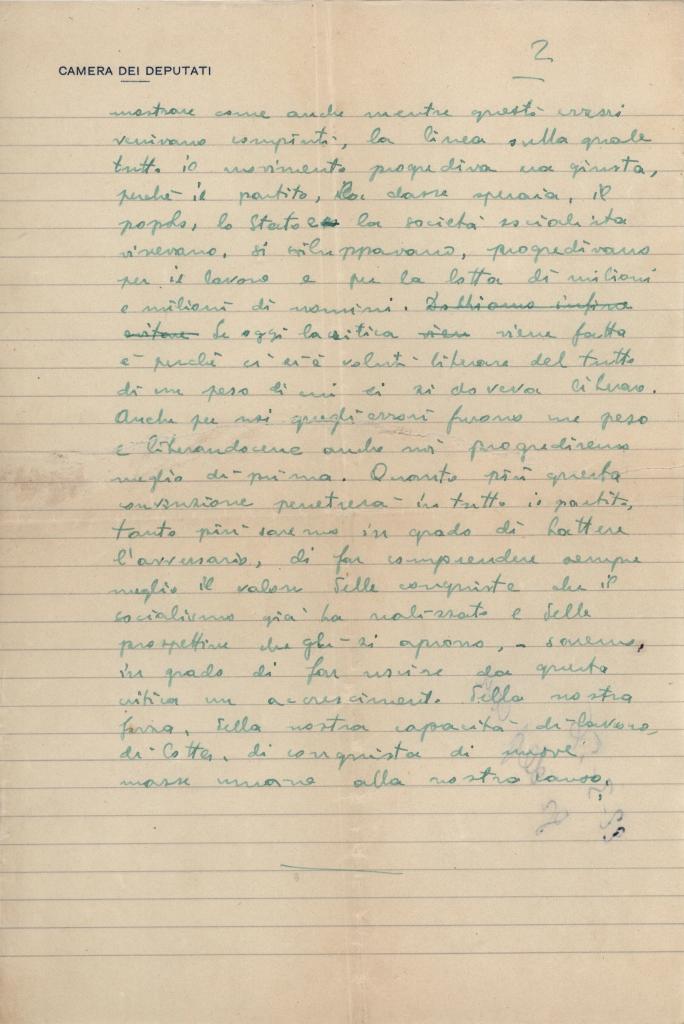 2
CAMERA DEI DEPUTATI
mostrare come anche mentre questi errori
venivano compiuti, la linea sulla quale
tutto il movimento progrediva era giusta,
perché il partito, la classe operaia, il
popolo, lo Stato e la società socialista
vivevano, si sviluppavano, progredivano
per il lavoro e per la lotta di milioni
e milioni di uomini. Dobbiamo infine
evitare Se oggi la critica vien viene fatta
è perché ci si è voluti liberare del tutto
di un peso di cui ci si doveva liberare.
Anche per noi quegli errori furono un peso
e liberandocene anche noi progrediremo
meglio di prima. Quanto più questa
convinzione penetrerà in tutto il partito,
tanto più saremo in grado di battere
l'avversario, di far comprendere sempre
meglio il valore delle conquiste che il
socialismo già ha realizzato e delle
prospettive che gli si aprono, saremo,
in grado di far uscire da questa
critica un accrescimento della nostra
forza, della nostra capacità di lavoro,
di lotta, di conquista di nuove
masse umane alla nostra causa.